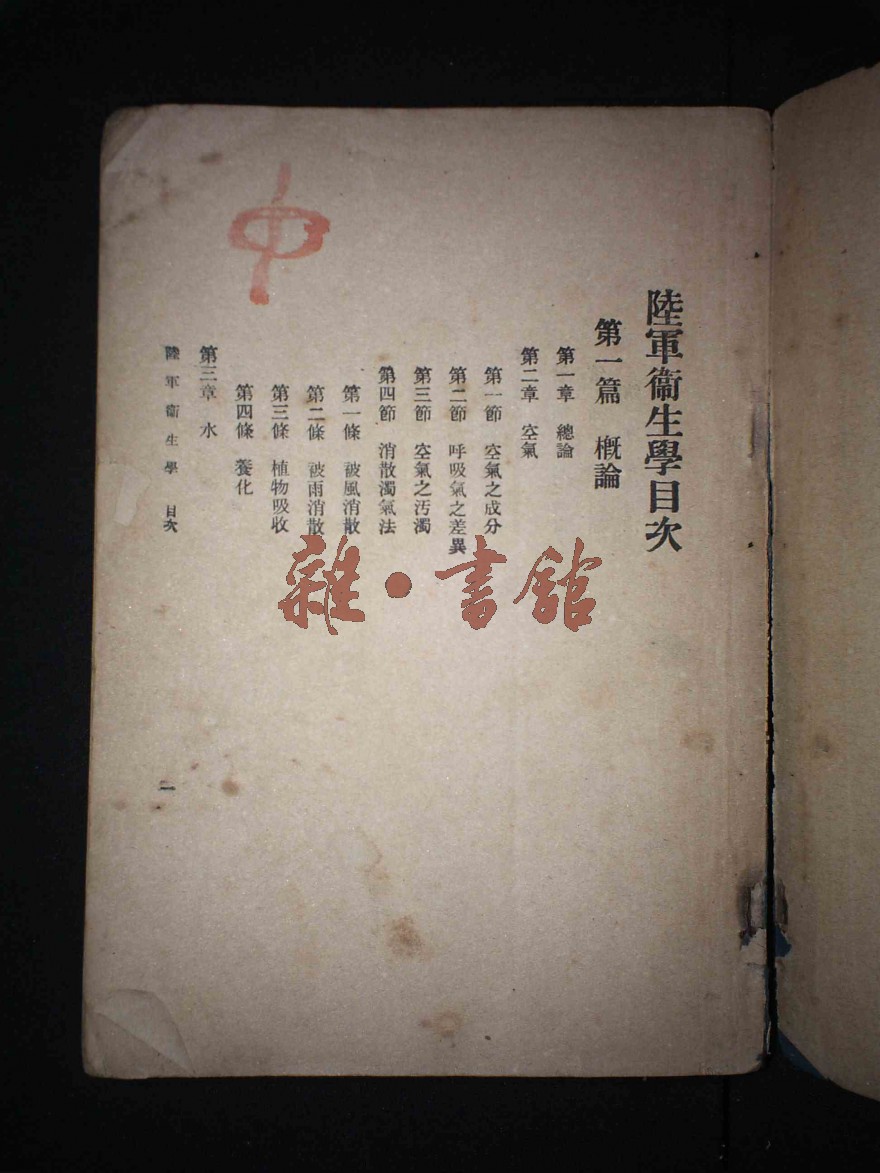 陸軍衞生學目次
第一篇 概論
第一章 總論
第二章 空氣
第一節 空氣之成分
第二節 呼吸氣之差異
第三節 空氣之汚濁
第四節 消散濁氣法
第一條 被風消散
第二條 被雨消散
第三條 植物吸收
第四條 養化
第三章 水
陸軍衞生學 目次
一
中
雜·書館